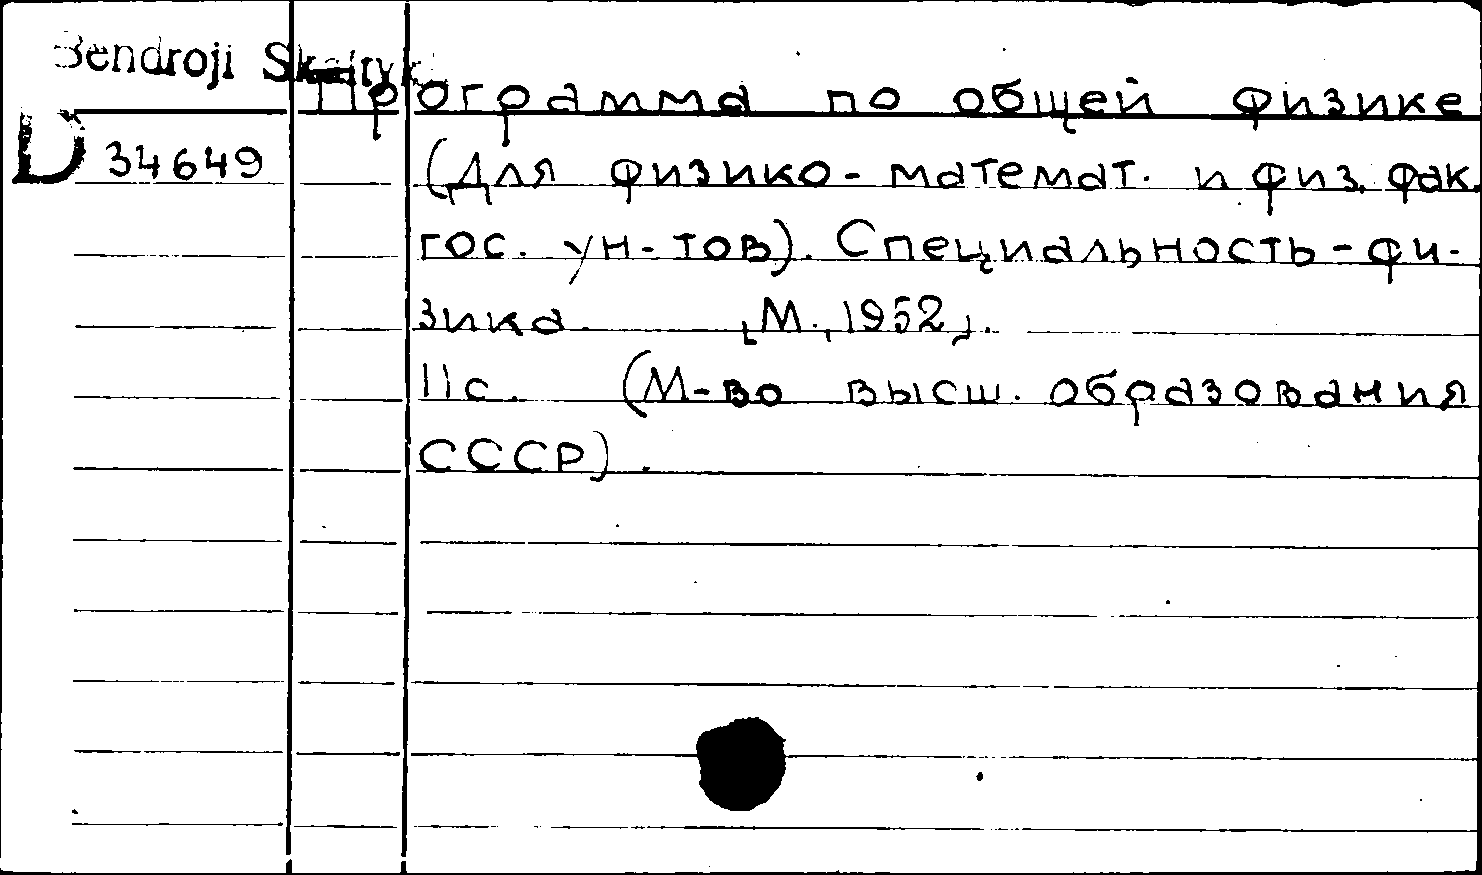 Bendroji Skaityk
Программа по общей физике
D 34649
(Для физико-математ. и физ. фак.
гос. ун-тов). Специальность-фи-
зика. [М., 1952].
11с. (М-во высш. образования
СССР).